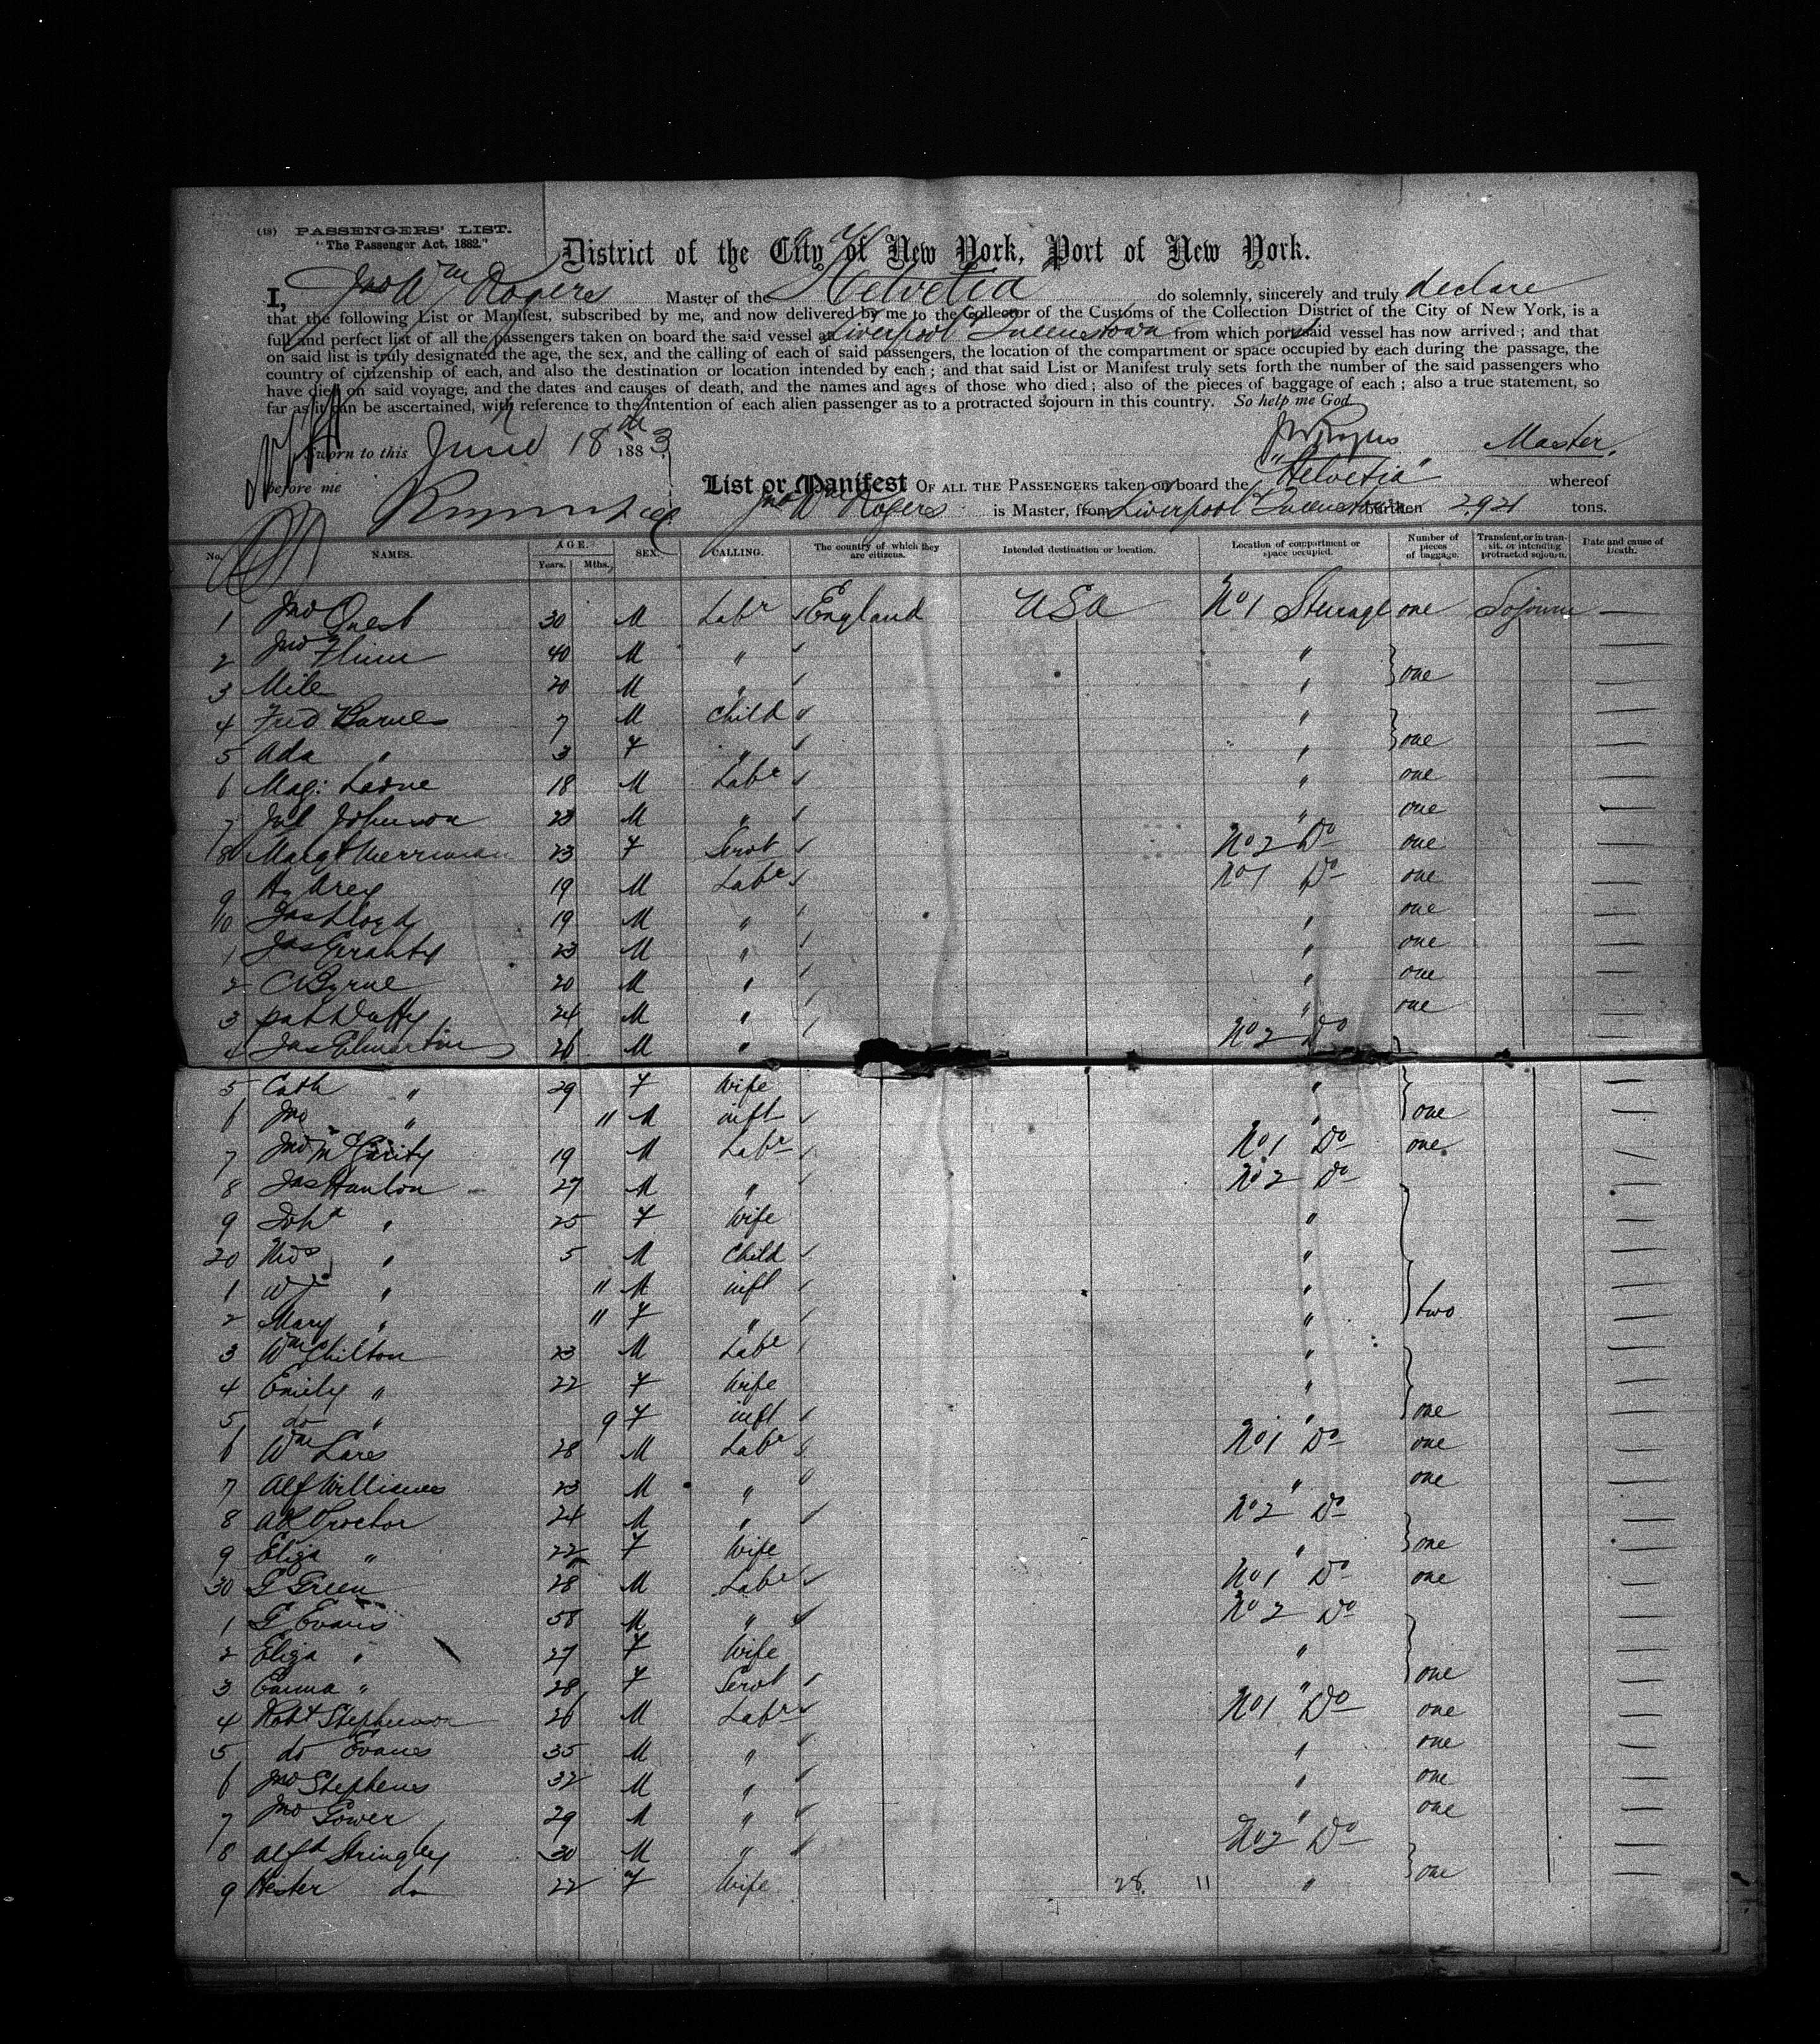 (18) PASSENGERS' LIST.
"The Passenger Act, 1882."
District of the City of New York, Port of New York.
I, Jno Wm Rogers Master of the Helvetia do solemnly, sincerely and truly declare
that the following List or Manifest, subscribed by me, and now delivered by me to the Collector of the Customs of the Collection District of the City of New York, is a
full and perfect list of all the passengers taken on board the said vessel at Liverpool Queenstown from which port said vessel has now arrived; and that
on said list is truly designated the age, the sex, and the calling of each of said passengers, the location of the compartment or space occupied by each during the passage, the
country of citizenship of each, and also the destination or location intended by each; and that said List or Manifest truly sets forth the number of the said passengers who
have died on said voyage, and the dates and causes of death, and the names and ages of those who died; also of the pieces of baggage of each; also a true statement, so
far as it can be ascertained, with reference to the intention of each alien passenger as to a protracted sojourn in this country. So help me God
Sworn to this June 18th 1883 JWRogers Master.
before me
List or Manifest OF ALL THE PASSENGERS taken on board the "Helvetia" whereof
Jno Wm Rogers is Master, from Liverpool Queenstown burthen 2921 tons.
No. NAMES. AGE. Years. Mths. SEX. CALLING. The country of which they are citizens. Intended destination or location. Location of compartment or space occupied. Number of pieces of baggage. Transient, or in transit, or intending protracted sojourn. Date and cause of Death.
1 Jno Quest 30 M Labr England USA No 1 Steerage one Sojourn —
2 Jno 40 M " " —
3 20 M " " one —
4 Fred Barnes 7 M Child " —
5 Ada " 3 F " " one —
6 18 M Labr " one —
7 Johnson 23 M " " one —
8 Margt Merriman 23 F Servt No 2 Do one —
9 19 M Labr No 1 Do one —
10 Jas Lloyd 19 M " " one —
1 Jas Gerahty 23 M " " one —
2 C Byrne 20 M " " one —
3 Pat Duffy 24 M " " one —
4 Jas Gilmartin 26 M " No 2 Do —
5 Cath " 29 F Wife " —
6 Jno " 11 M inft " one —
7 Jno McGarity 19 M Labr No 1 Do one —
8 Jas Hanlon 27 M " No 2 Do —
9 Joha " 25 F Wife " —
20 Thos " 5 M Child " —
1 Wm " 11 M inft " —
2 Mary " 11 F " " two —
3 Wm Chilton 23 M Labr " —
4 Emily " 22 F Wife " —
5 do " 9 F inft " one —
6 Wm Lares 28 M Labr No 1 Do one —
7 Alf Williams 23 M " " one —
8 Proctor 24 M " No 2 Do —
9 Eliza " 22 F Wife " one —
30 G Green 28 M Labr No 1 Do one —
1 G Evans 58 M " No 2 Do —
2 Eliza " 27 F Wife " —
3 Emma " 28 F Servt " one —
4 Robt Stephenson 26 M Labr No 1 Do one —
5 do Evans 35 M " " one —
6 Jno Stephens 32 M " " one —
7 Jno Gower 29 M " " one —
8 Alfd Stringley 30 M " No 2 Do —
9 Hester do 22 F Wife 28 11 " one —